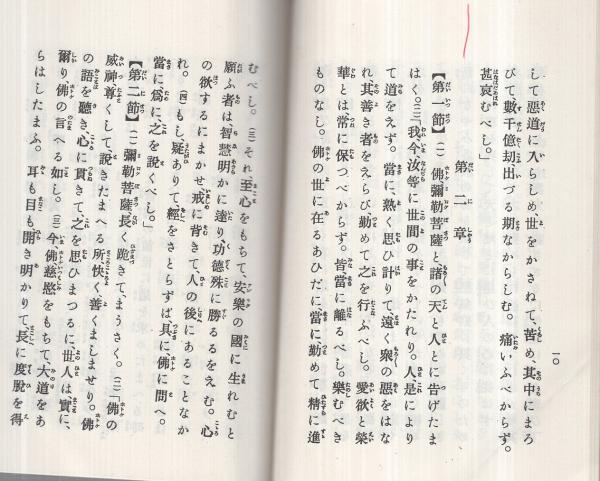 一〇
して惡道に入らしめ、世をかさねて、苦め、其中にまろ
びて、數千億劫出づる期なからしむ。痛いふべからず。
甚哀むべし。」
第二章
【第一節】㈠ 佛彌勒菩薩と諸の天と人とに告げたま
はく。㈡「我今汝等に世間の事をかたれり。人是により
て道をえず。當に、熟く思ひ計りて、遠く衆の惡をはな
れ、其善き者をえらび勤めて之を行ふべし。愛欲と榮
華とは常に保つべからず。皆當に離るべし。樂むべき
ものなし。佛の世に在るあひだに當に勤めて精に進
むべし。㈢ それ、至心をもちて、安樂の國に生れむと
願ふ者は智慧明かに達り功德殊に勝るをえむ。心
の欲するにまかせ戒に背きて、人の後にあることなか
れ。㈣ もし疑ありて、經をさとらずば具に佛に問へ。
當に爲に、之を說くべし。」
【第二節】㈠ 彌勒菩薩、長く跪きて、まうさく。㈡「佛の
威神、尊くして、說きたまへる所、快く善くましませり。佛
の語を聽き、心に貫きて、之を思ひまつるに、世人は實に、
爾り、佛の言へる如し。㈢ 今佛慈愍をもちて、大道をあ
らはしたまふ。耳も目も開き明かりて、長に度脫を得